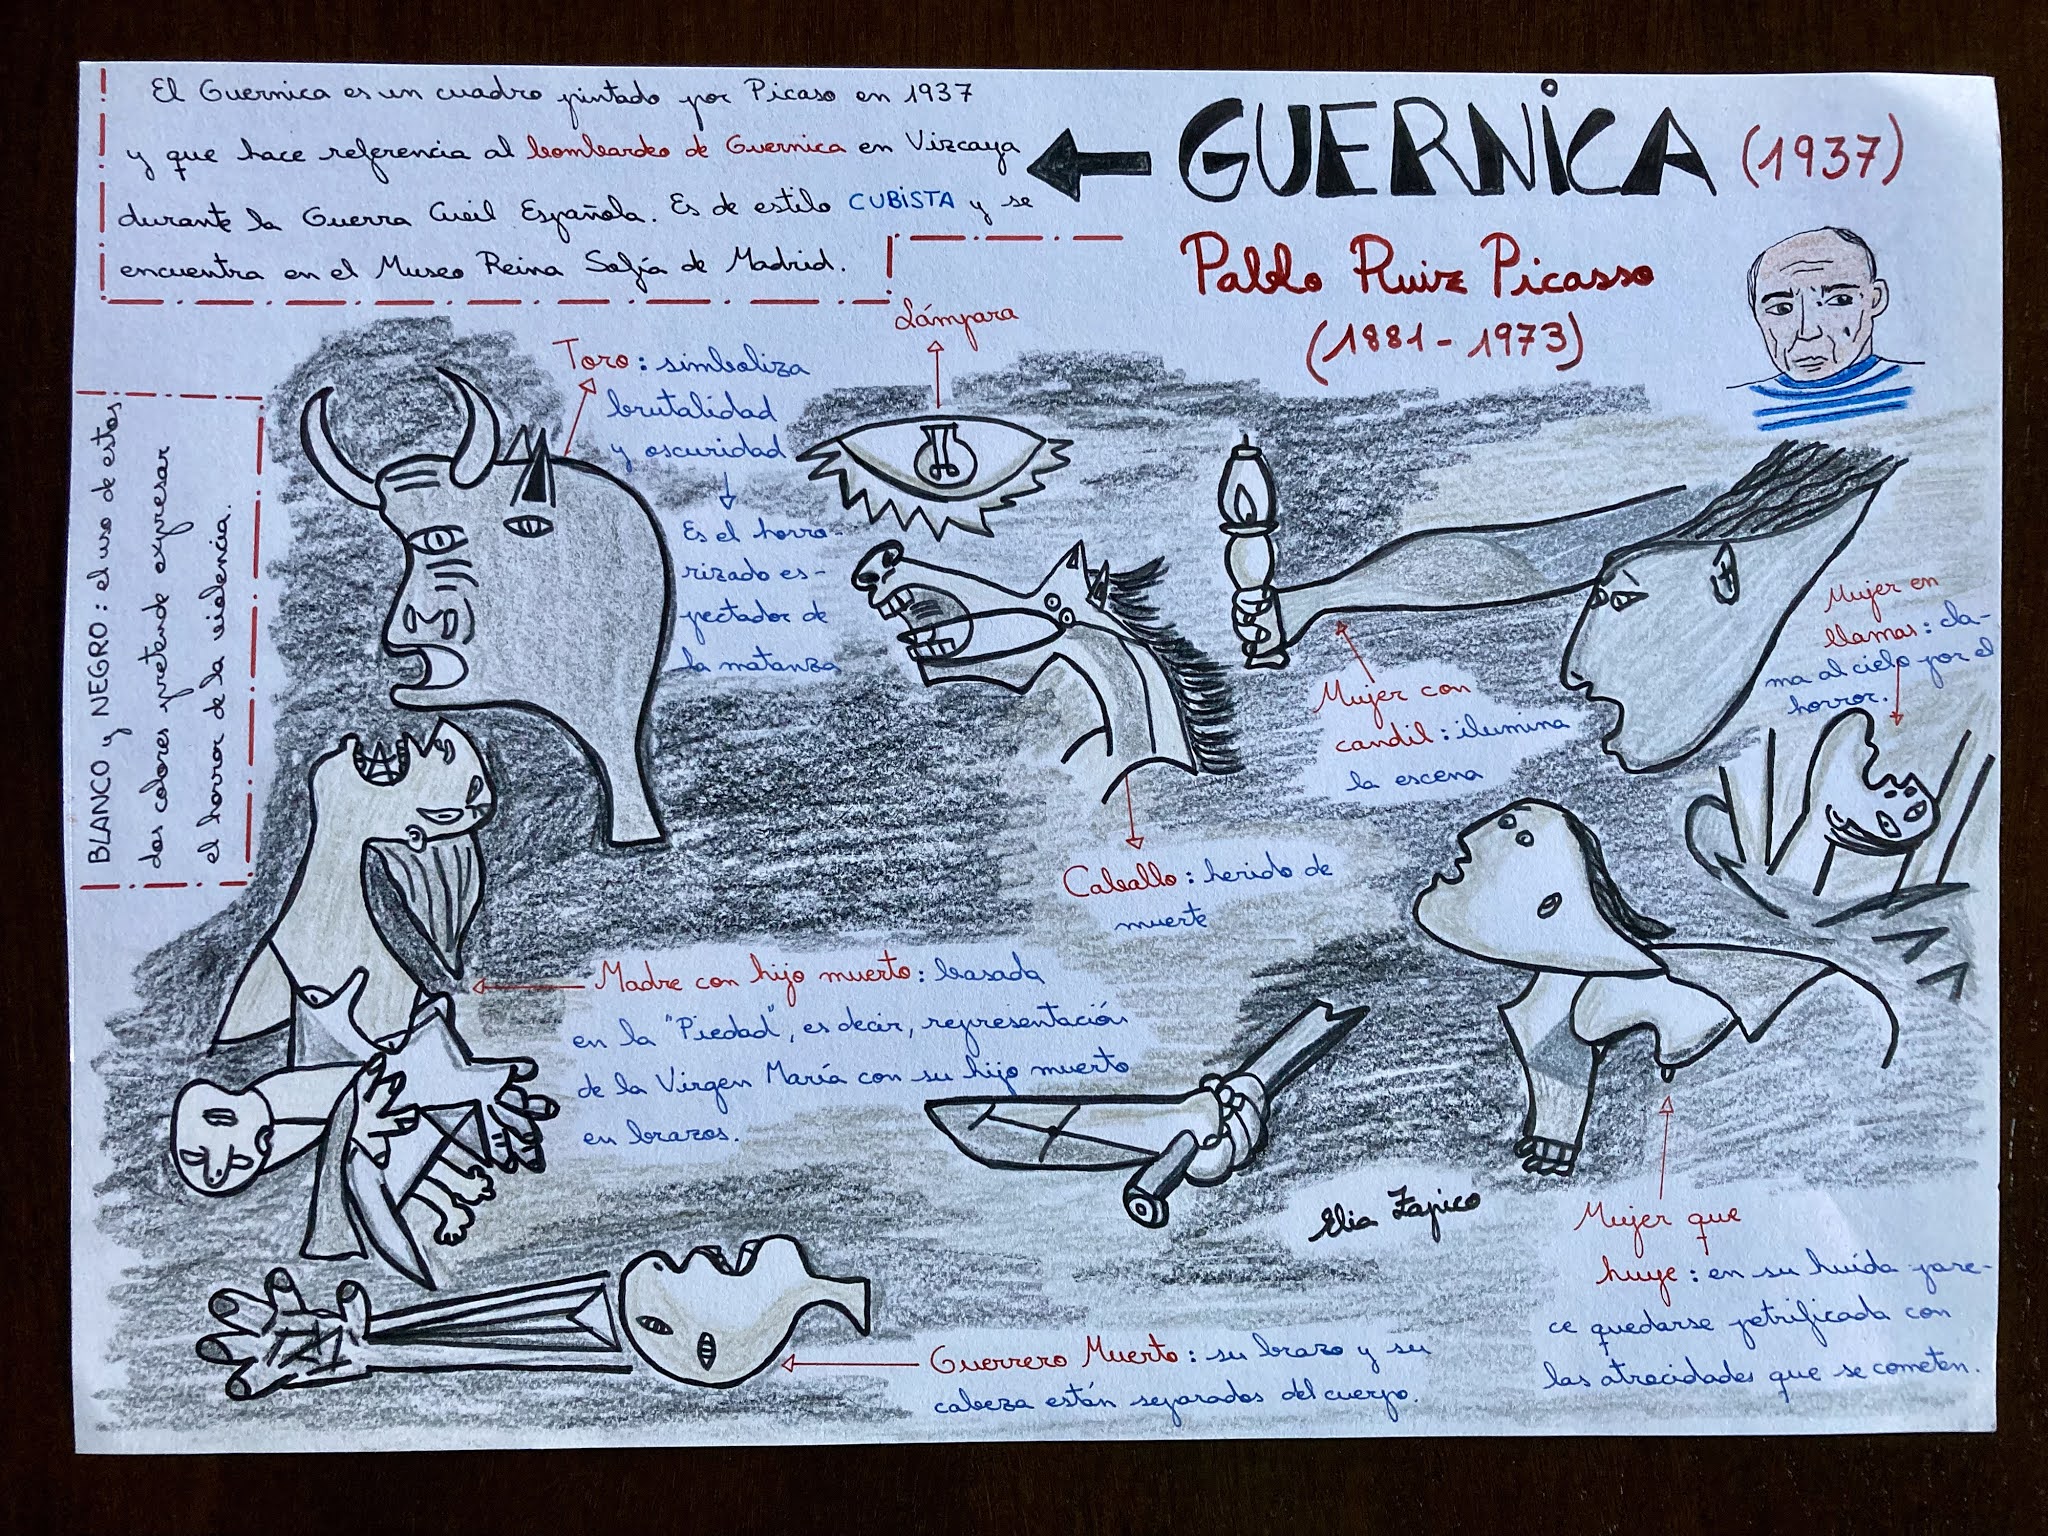 El Guernica es un cuadro pintado por Picaso en 1937
y que hace referencia al bombardeo de Guernica en Vizcaya
durante la Guerra Civil Española. Es de estilo CUBISTA y se
encuentra en el Museo Reina Sofía de Madrid.
GUERNICA (1937)
Pablo Ruiz Picasso
(1881-1973)
BLANCO y NEGRO: el uso de estos
dos colores pretende expresar
el horror de la violencia.
Toro: simboliza
brutalidad
y oscuridad
Es el horro-
rizado es-
pectador de
la matanza
Lámpara
Mujer con
candil: ilumina
la escena
Mujer en
llamas: cla-
ma al cielo por el
horror.
Caballo: herido de
muerte
Madre con hijo muerto: basada
en la "Piedad", es decir, representación
de la Virgen María con su hijo muerto
en brazos.
Elia Zapico
Mujer que
huye: en su huída pare-
ce quedarse petrificada con
las atrocidades que se cometen.
Guerrero Muerto: su brazo y su
cabeza están separados del cuerpo.